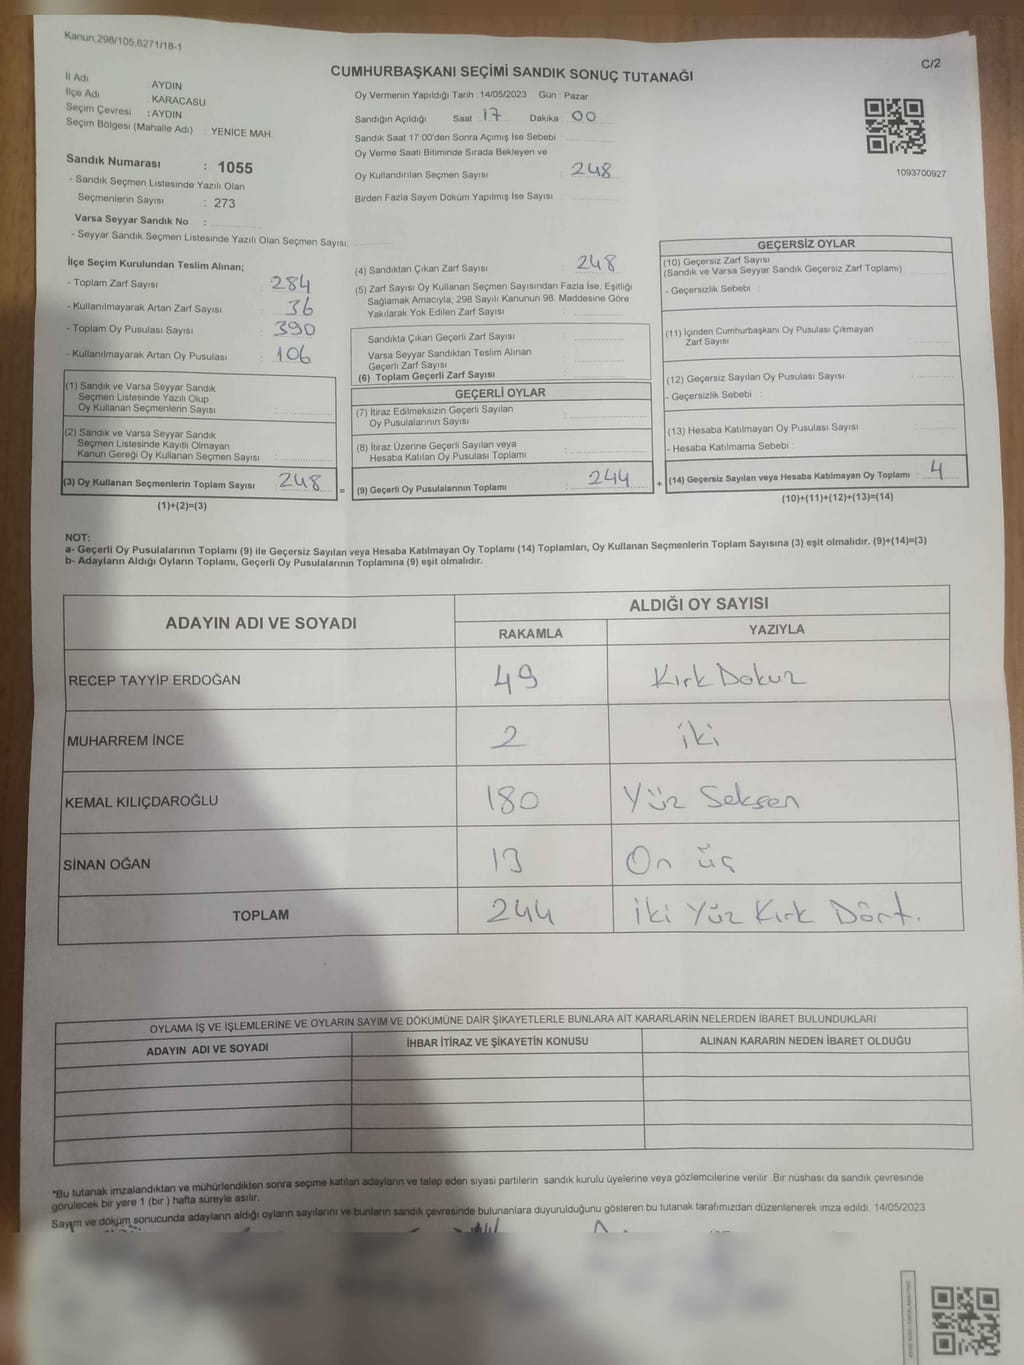 Kanun.298/105,6271/18-1
C/2
CUMHURBAŞKANI SEÇİMİ SANDIK SONUÇ TUTANAĞI
İl Adı AYDIN
İlçe Adı : KARACASU
Seçim Çevresi : AYDIN
Seçim Bölgesi (Mahalle Adı) : YENİCE MAH.
Sandık Numarası : 1055
- Sandık Seçmen Listesinde Yazılı Olan
Seçmenlerin Sayısı : 273
Varsa Seyyar Sandık No :
- Seyyar Sandık Seçmen Listesinde Yazılı Olan Seçmen Sayısı
Oy Vermenin Yapıldığı Tarih : 14/05/2023 Gün : Pazar
Sandığın Açıldığı Saat : 17 Dakika : 00
Sandık Saat 17:00'den Sonra Açımış İse Sebebi
Oy Verme Saati Bitiminde Sırada Bekleyen ve
Oy Kullandırılan Seçmen Sayısı : 248
Birden Fazla Sayım Döküm Yapılmış İse Sayısı :
1093700927
İlçe Seçim Kurulundan Teslim Alınan;
- Toplam Zarf Sayısı : 284
- Kullanılmayarak Artan Zarf Sayısı : 36
- Toplam Oy Pusulası Sayısı : 390
- Kullanılmayarak Artan Oy Pusulası : 106
(1) Sandık ve Varsa Seyyar Sandık
Seçmen Listesinde Yazılı Olup
Oy Kullanan Seçmenlerin Sayısı :
(2) Sandık ve Varsa Seyyar Sandık
Seçmen Listesinde Kayıtlı Olmayan
Kanun Gereği Oy Kullanan Seçmen Sayısı :
(3) Oy Kullanan Seçmenlerin Toplam Sayısı : 248
(1)+(2)=(3)
(4) Sandıktan Çıkan Zarf Sayısı : 248
(5) Zarf Sayısı Oy Kullanan Seçmen Sayısından Fazla İse, Eşitliği
Sağlamak Amacıyla, 298 Sayılı Kanunun 98. Maddesine Göre
Yakılarak Yok Edilen Zarf Sayısı :
Sandıkta Çıkan Geçerli Zarf Sayısı :
Varsa Seyyar Sandıktan Teslim Alınan
Geçerli Zarf Sayısı :
(6) Toplam Geçerli Zarf Sayısı :
GEÇERLİ OYLAR
(7) İtiraz Edilmeksizin Geçerli Sayılan
Oy Pusulalarının Sayısı :
(8) İtiraz Üzerine Geçerli Sayılan veya
Hesaba Katılan Oy Pusulası Toplamı :
= (9) Geçerli Oy Pusulalarının Toplamı : 244
GEÇERSİZ OYLAR
(10) Geçersiz Zarf Sayısı
(Sandık ve Varsa Seyyar Sandık Geçersiz Zarf Toplamı)
- Geçersizlik Sebebi :
(11) İçinden Cumhurbaşkanı Oy Pusulası Çıkmayan
Zarf Sayısı
(12) Geçersiz Sayılan Oy Pusulası Sayısı :
- Geçersizlik Sebebi :
(13) Hesaba Katılmayan Oy Pusulası Sayısı
- Hesaba Katılmama Sebebi :
+ (14) Geçersiz Sayılan veya Hesaba Katılmayan Oy Toplamı : 4
(10)+(11)+(12)+(13)=(14)
NOT:
a- Geçerli Oy Pusulalarının Toplamı (9) ile Geçersiz Sayılan veya Hesaba Katılmayan Oy Toplamı (14) Toplamları, Oy Kullanan Seçmenlerin Toplam Sayısına (3) eşit olmalıdır. (9)+(14)=(3)
b- Adayların Aldığı Oyların Toplamı, Geçerli Oy Pusulalarının Toplamına (9) eşit olmalıdır.
ADAYIN ADI VE SOYADI ALDIĞI OY SAYISI
RAKAMLA YAZIYLA
RECEP TAYYİP ERDOĞAN 49 Kırk Dokuz
MUHARREM İNCE 2 iki
KEMAL KILIÇDAROĞLU 180 Yüz Seksen
SİNAN OĞAN 13 On üç
TOPLAM 244 iki Yüz Kırk Dört.
OYLAMA İŞ VE İŞLEMLERİNE VE OYLARIN SAYIM VE DÖKÜMÜNE DAİR ŞİKAYETLERLE BUNLARA AİT KARARLARIN NELERDEN İBARET BULUNDUKLARI
ADAYIN ADI VE SOYADI İHBAR İTİRAZ VE ŞİKAYETİN KONUSU ALINAN KARARIN NEDEN İBARET OLDUĞU
*Bu tutanak imzalandıktan ve mühürlendikten sonra seçime katılan adayların ve talep eden siyasi partilerin sandık kurulu üyelerine veya gözlemcilerine verilir. Bir nüshası da sandık çevresinde
görülecek bir yere 1 (bir ) hafta süreyle asılır.
Sayım ve döküm sonucunda adayların aldığı oyların sayılarını ve bunların sandık çevresinde bulunanlara duyurulduğunu gösteren bu tutanak tarafımızdan düzenlenerek imza edildi. 14/05/2023